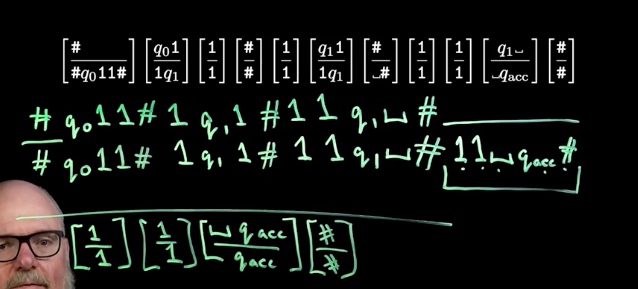 [#/#q₀11#] [q₀1/1q₁] [1/1] [#/#] [1/1] [q₁1/1q₁] [#/␣#] [1/1] [1/1] [q₁␣/␣q_acc] [#/#]
# q₀ 1 1 # 1 q₁ 1 # 1 1 q₁ ␣ #
# q₀ 1 1 # 1 q₁ 1 # 1 1 q₁ ␣ # 1 1 ␣ q_acc #
[1/1] [1/1] [␣ q_acc/q_acc] [#/#]